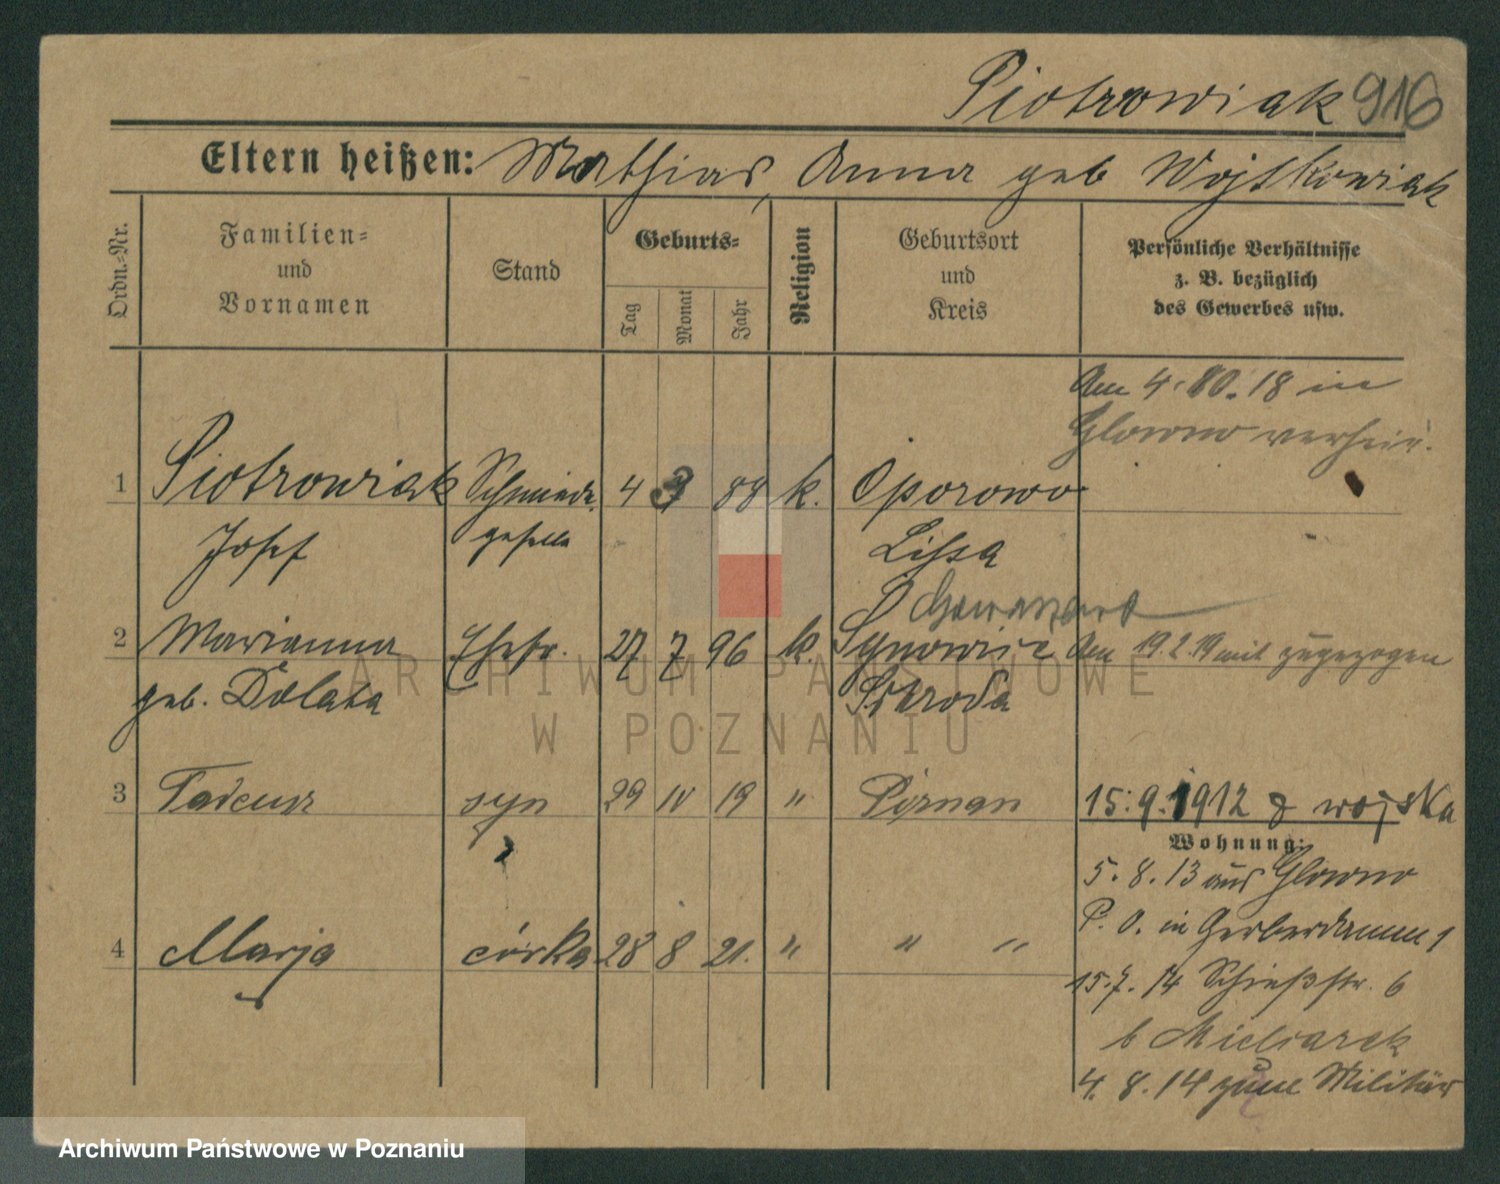 Piotrowiak 916
Eltern heißen: Mathias, Anna geb Wojtkowiak
Ordn.-Nr.
Familien-
und
Vornamen
Stand
Geburts-
Tag
Monat
Jahr
Religion
Geburtsort
und
Kreis
Persönliche Verhältnisse
z. B. bezüglich
des Gewerbes usw.
Am 4.10.18 in
Glowno verheir.
1 Piotrowiak Schmiede 4 3 88 k. Oporowo
Josef geselle Lissa
2 Marianna Ehefr. 27 7 96 k. Am 19.2.19 mit zugezogen
geb. Dolata Schroda
3 Tadeusz syn 29 IV 19 " Poznan 15.9.1912 z wojska
Wohnung:
5.8.13 aus Glowno
P. O. in Gerberdamm 1
4 Marja córka 28 8 21. " " "
15.7.14 Schießstr. 6
b Mielcarek
4.8.14 zum Militär
ARCHIWUM PAŃSTWOWE
W POZNANIU
Archiwum Państwowe w Poznaniu